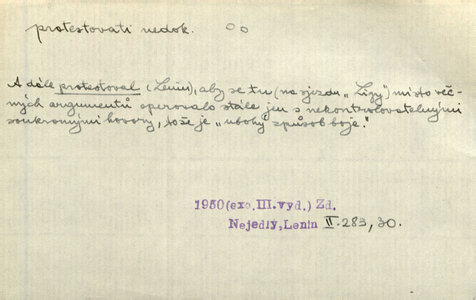 protestovati nedok. oo
A dále protestoval (Lenin), aby se tu (na sjezdu „Ligy") místo věc-
ných argumentů operovalo stále jen s nekontrolovatelnými
soukromými hovory, toť je „ubohý způsob boje."
1950(exc.III.vyd.) Zd.
Nejedlý, Lenin II. 283, 30.